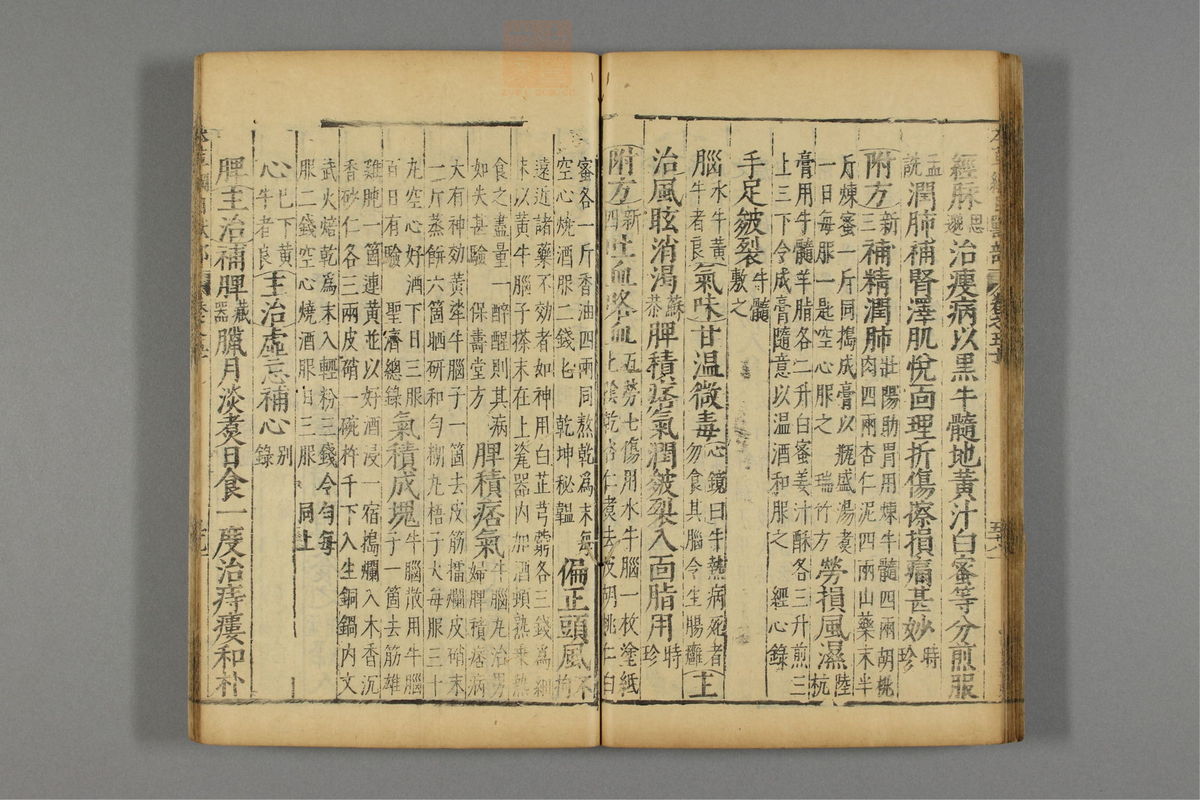 經脉思邈治瘦病以黑牛髓地黃汁白蜜等分煎服
孟詵潤肺補腎澤肌悅面理折傷擦損痛甚妙時珍
附方新三補精潤肺壯陽助胃用煉牛髓四兩胡桃肉四兩杏仁泥四兩山藥末半
斤煉蜜一斤同搗成膏以瓶盛湯煮一日每服一匙空心服之 瑞竹方 勞損風濕陸杭
膏用牛髓羊脂各二升白蜜姜汁酥各三升煎三上三下令成膏隨意以溫酒和服之 經心錄
手足皴裂牛髓敷之
腦水牛黃牛者良氣味甘溫微毒心鏡曰牛熱病死者勿食其腦令生腸癰主
治風眩消渴蘇恭脾積痞氣潤皴裂入面脂用時珍
附方新四吐血咯血五勞七傷用水牛腦一枚塗紙上陰乾杏仁煮去皮胡桃仁白
蜜各一斤香油四兩同熬乾爲末每空心燒酒服二錢匕 乾坤秘韞 偏正頭風不拘
遠近諸藥不效者如神用白芷芎藭各三錢爲細末以黃牛腦子搽末在上瓷器內加酒頓熟乘熱
食之盡量一醉醒則其病如失甚驗 保壽堂方 脾積痞氣牛腦丸治男婦脾積痞病
大有神效黃犂牛腦子一箇去皮筋擂爛皮硝末一斤蒸餅六箇晒研和勻糊丸梧子大每服三十
丸空心好酒下日三服百日有驗 聖濟總錄 氣積成塊牛腦散用牛腦子一箇去筋雄
雞肫一箇連黃並以好酒浸一宿搗爛入木香沉香砂仁各三兩皮硝一碗杵千下入生銅鍋內文
武火焙乾爲末入輕粉三錢令勻每服二錢空心燒酒服日三服 同上
心已下黃牛者良主治虛忘補心別錄
脾主治補脾藏器臘月淡煮日食一度治痔瘻和朴